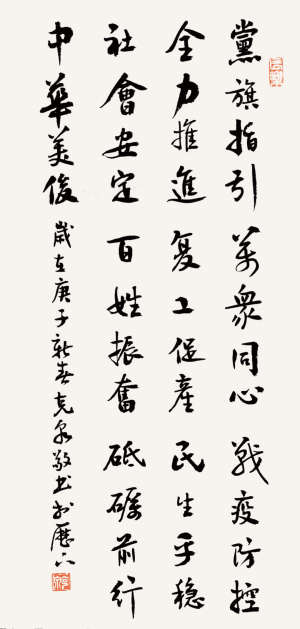 黨旗指引萬衆同心戰疫防控
全力推進复工促產民生平穩
社會安定百姓振奮砥礪前行
中華美俊
歲在庚子新春克泉敬书於歷下